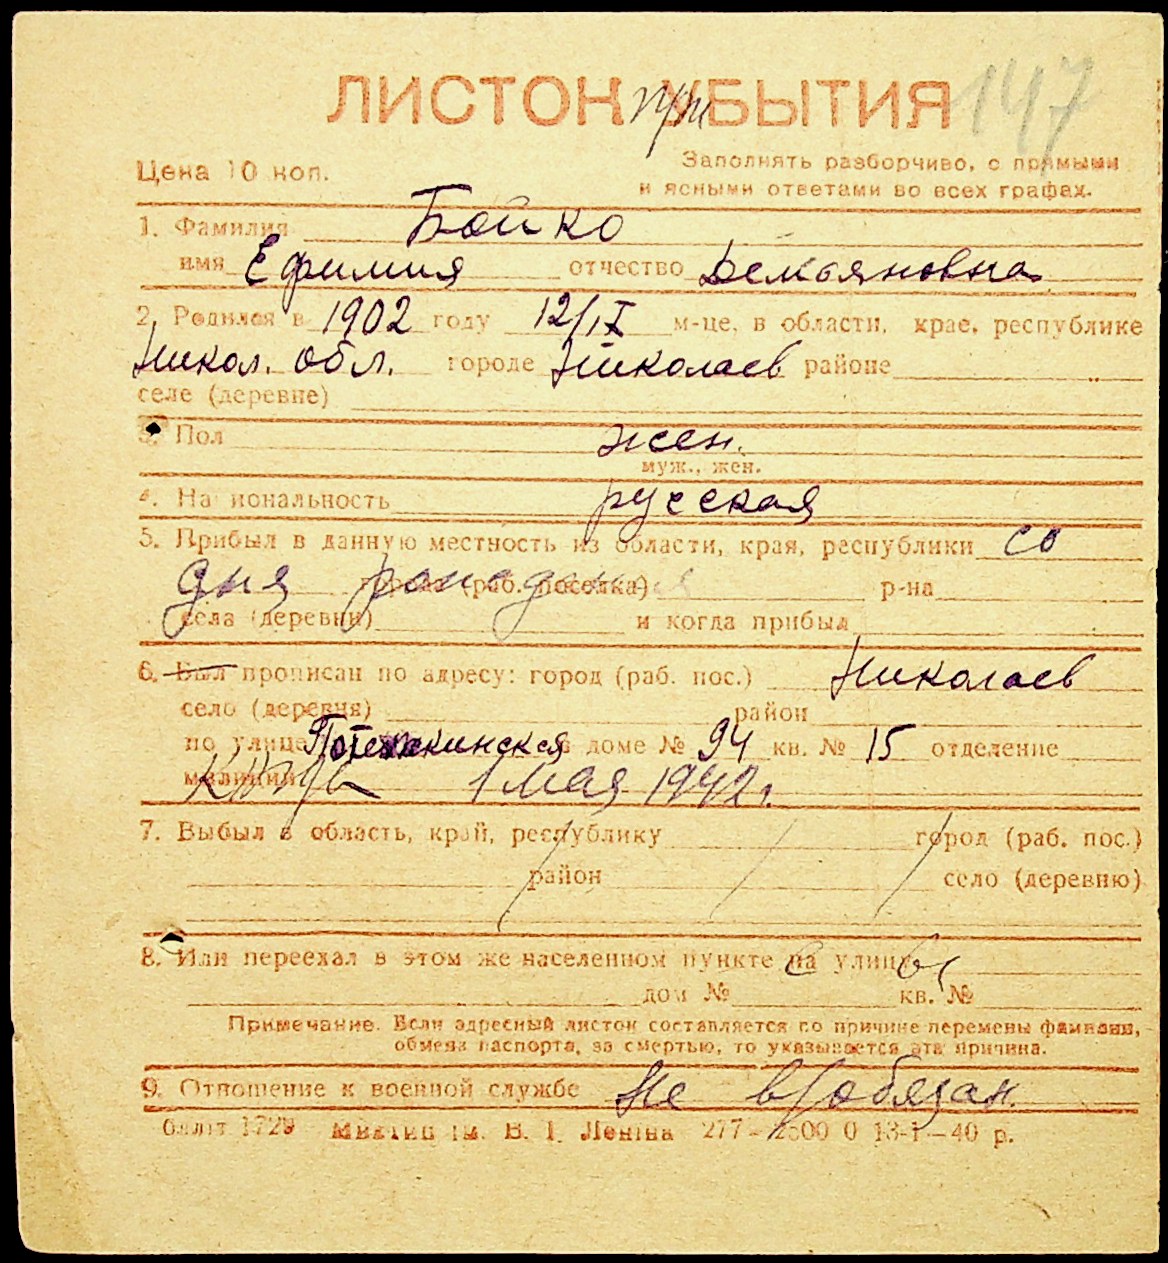 ЛИСТОК УБЫТИЯ 147
при
Цена 10 коп. Заполнять разборчиво, с прямыми
и ясными ответами во всех графах.
1. Фамилия Бойко
имя Ефимия отчество Демьяновна
2. Родился в 1902 году 12/IX м-це, в области, крае, республике
Никол. обл. городе Николаев районе
селе (деревне)
3. Пол жен.
муж., жен.
4. Национальность русская
5. Прибыл в данную местность из области, края, республики со
дня рождения города (раб. поселка) р-на
села (деревни) и когда прибыл
6. Был прописан по адресу: город (раб. пос.) Николаев
село (деревня) район
по улице Потемкинская в доме № 94 кв. № 15 отделение
милиции 1 мая 1942 г.
7. Выбыл в область, край, республику город (раб. пос.)
район село (деревню)
8. Или переехал в этом же населенном пункте на улицу
дом № кв. №
Примечание. Если адресный листок составляется по причине перемены фамилии,
обмена паспорта, за смертью, то указывается эта причина.
9. Отношение к военной службе Не в/обязан.
1729 ім. В. І. Леніна 277—2500 0 13-I—40 р.